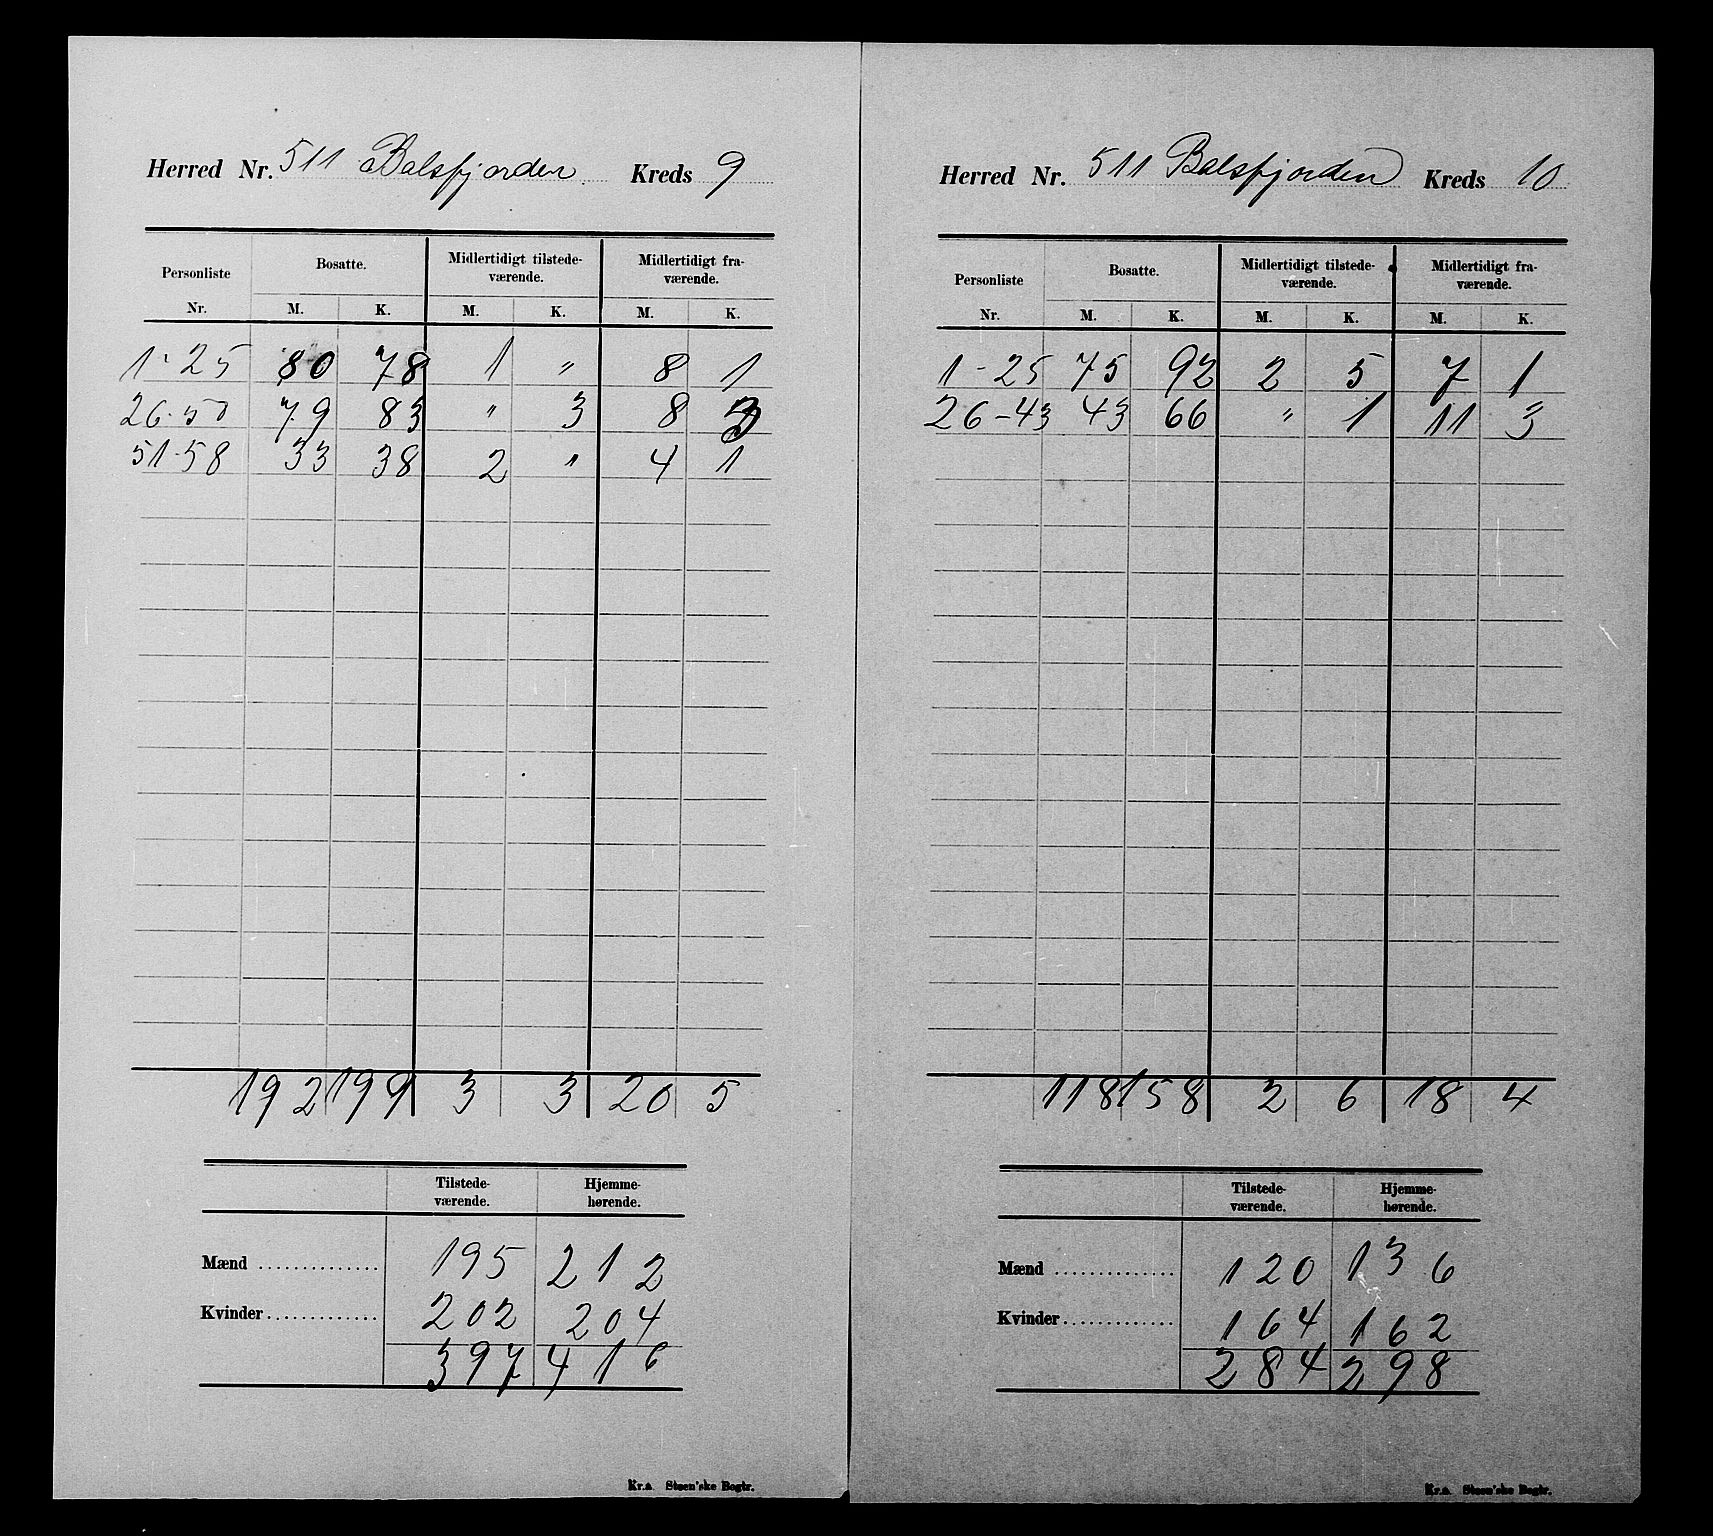 Herred Nr. 511 Balsfjorden Kreds 9
Personliste Bosatte. Midlertidigt tilstede- Midlertidigt fra-
værende. værende.
Nr. M. K. M. K. M. K.
1-25 80 78 1 " 8 1
26-50 79 83 " 3 8 3
51-58 33 38 2 " 4 1
192 199 3 3 20 5
Tilstede- Hjemme-
værende. hørende.
Mænd .............. 195 212
Kvinder ............. 202 204
397 416
Kr.a Steen'ske Bogtr.
Herred Nr. 511 Balsfjorden Kreds 10
Personliste Bosatte. Midlertidigt tilstede- Midlertidigt fra-
værende. værende.
Nr. M. K. M. K. M. K.
1-25 75 92 2 5 7 1
26-43 43 66 " 1 11 3
118 158 2 6 18 4
Tilstede- Hjemme-
værende. hørende.
Mænd .............. 120 136
Kvinder ............. 164 162
284 298
Kr.a Steen'ske Bogtr.